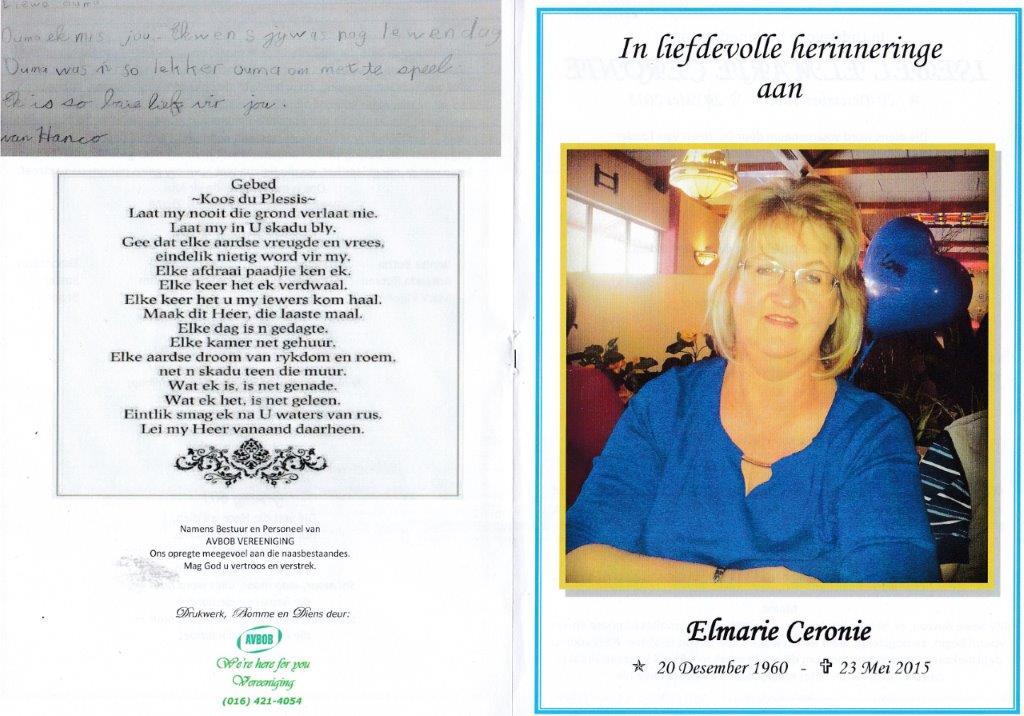 Liewe ouma
Ouma ek mis jou. Ek wens jy was nog lewendag
Ouma was 'n so lekker ouma om met te speel.
Ek is so baie lief vir jou.
van Hanco
Gebed
~Koos du Plessis~
Laat my nooit die grond verlaat nie.
Laat my in U skadu bly.
Gee dat elke aardse vreugde en vrees,
eindelik nietig word vir my.
Elke afdraai paadjie ken ek.
Elke keer het ek verdwaal.
Elke keer het u my iewers kom haal.
Maak dit Heer, die laaste maal.
Elke dag is n gedagte.
Elke kamer net gehuur.
Elke aardse droom van rykdom en roem,
net n skadu teen die muur.
Wat ek is, is net genade.
Wat ek het, is net geleen.
Eintlik smag ek na U waters van rus.
Lei my Heer vanaand daarheen.
Namens Bestuur en Personeel van
AVBOB VEREENIGING
Ons opregte meegevoel aan die naasbestaandes.
Mag God u vertroos en verstrek.
Drukwerk, Blomme en Diens deur:
AVBOB
We're here for you
Vereeniging
(016) 421-4054
In liefdevolle herinneringe
aan
Elmarie Ceronie
✯ 20 Desember 1960 - ✞ 23 Mei 2015